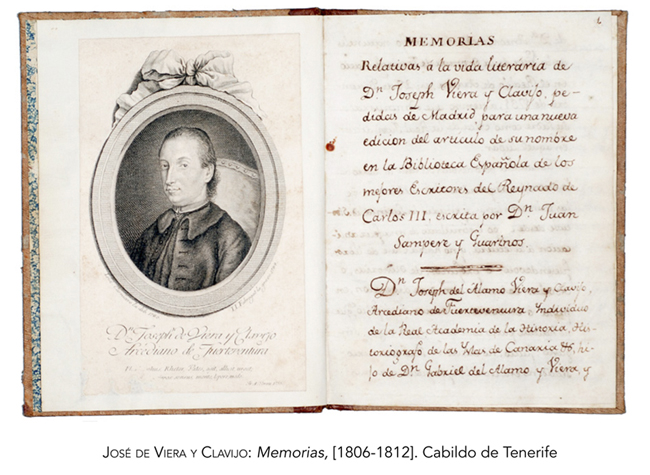 D.ⁿ Joseph de Viera y Clavijo
Arcediano de Fuerteventura
1
MEMORIAS
Relativas á la vida literaria de
Dⁿ Joseph Viera y Clavijo, pe-
didas de Madrid, para una nueva
edicion del articulo de su nombre
en la Biblioteca Española de los
mejores Escritores del Reynado de
Carlos III, escrita por Dⁿ Juan
Sempere y Guarinos.
Dⁿ Joseph del Alamo Viera y Clavijo,
Arcediano de Fuerteventura, Individuo
de la Real Academia de la Historia, His-
toriografo de las Yslas de Canaria &, hi-
jo de Dⁿ Gabriel del Alamo y Viera, y
JOSÉ DE VIERA Y CLAVIJO: Memorias, [1806-1812]. Cabildo de Tenerife